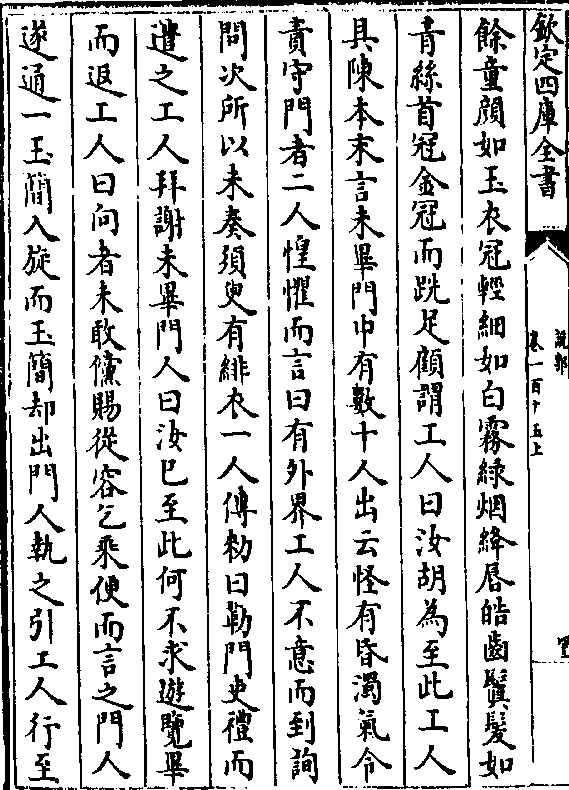 欽定四庫全書
說郛
卷一百十五上
餘童顔如玉衣冠輕細如白霧綠烟絳唇皓齒鬢髮如
青絲首冠金冠而跣足顧謂工人曰汝胡為至此工人
具陳本末言未畢門中有數十人出云怪有昏濁氣令
責守門者二人惶懼而言曰有外界工人不意而到詢
問次所以未奏須臾有緋衣一人傳勑曰勒門吏禮而
遣之工人拜謝未畢門人曰汝已至此何不求遊覽畢
而返工人曰向者未敢儻賜從容乞乘便而言之門人
遂通一玉簡入旋而玉簡却出門人執之引工人行至